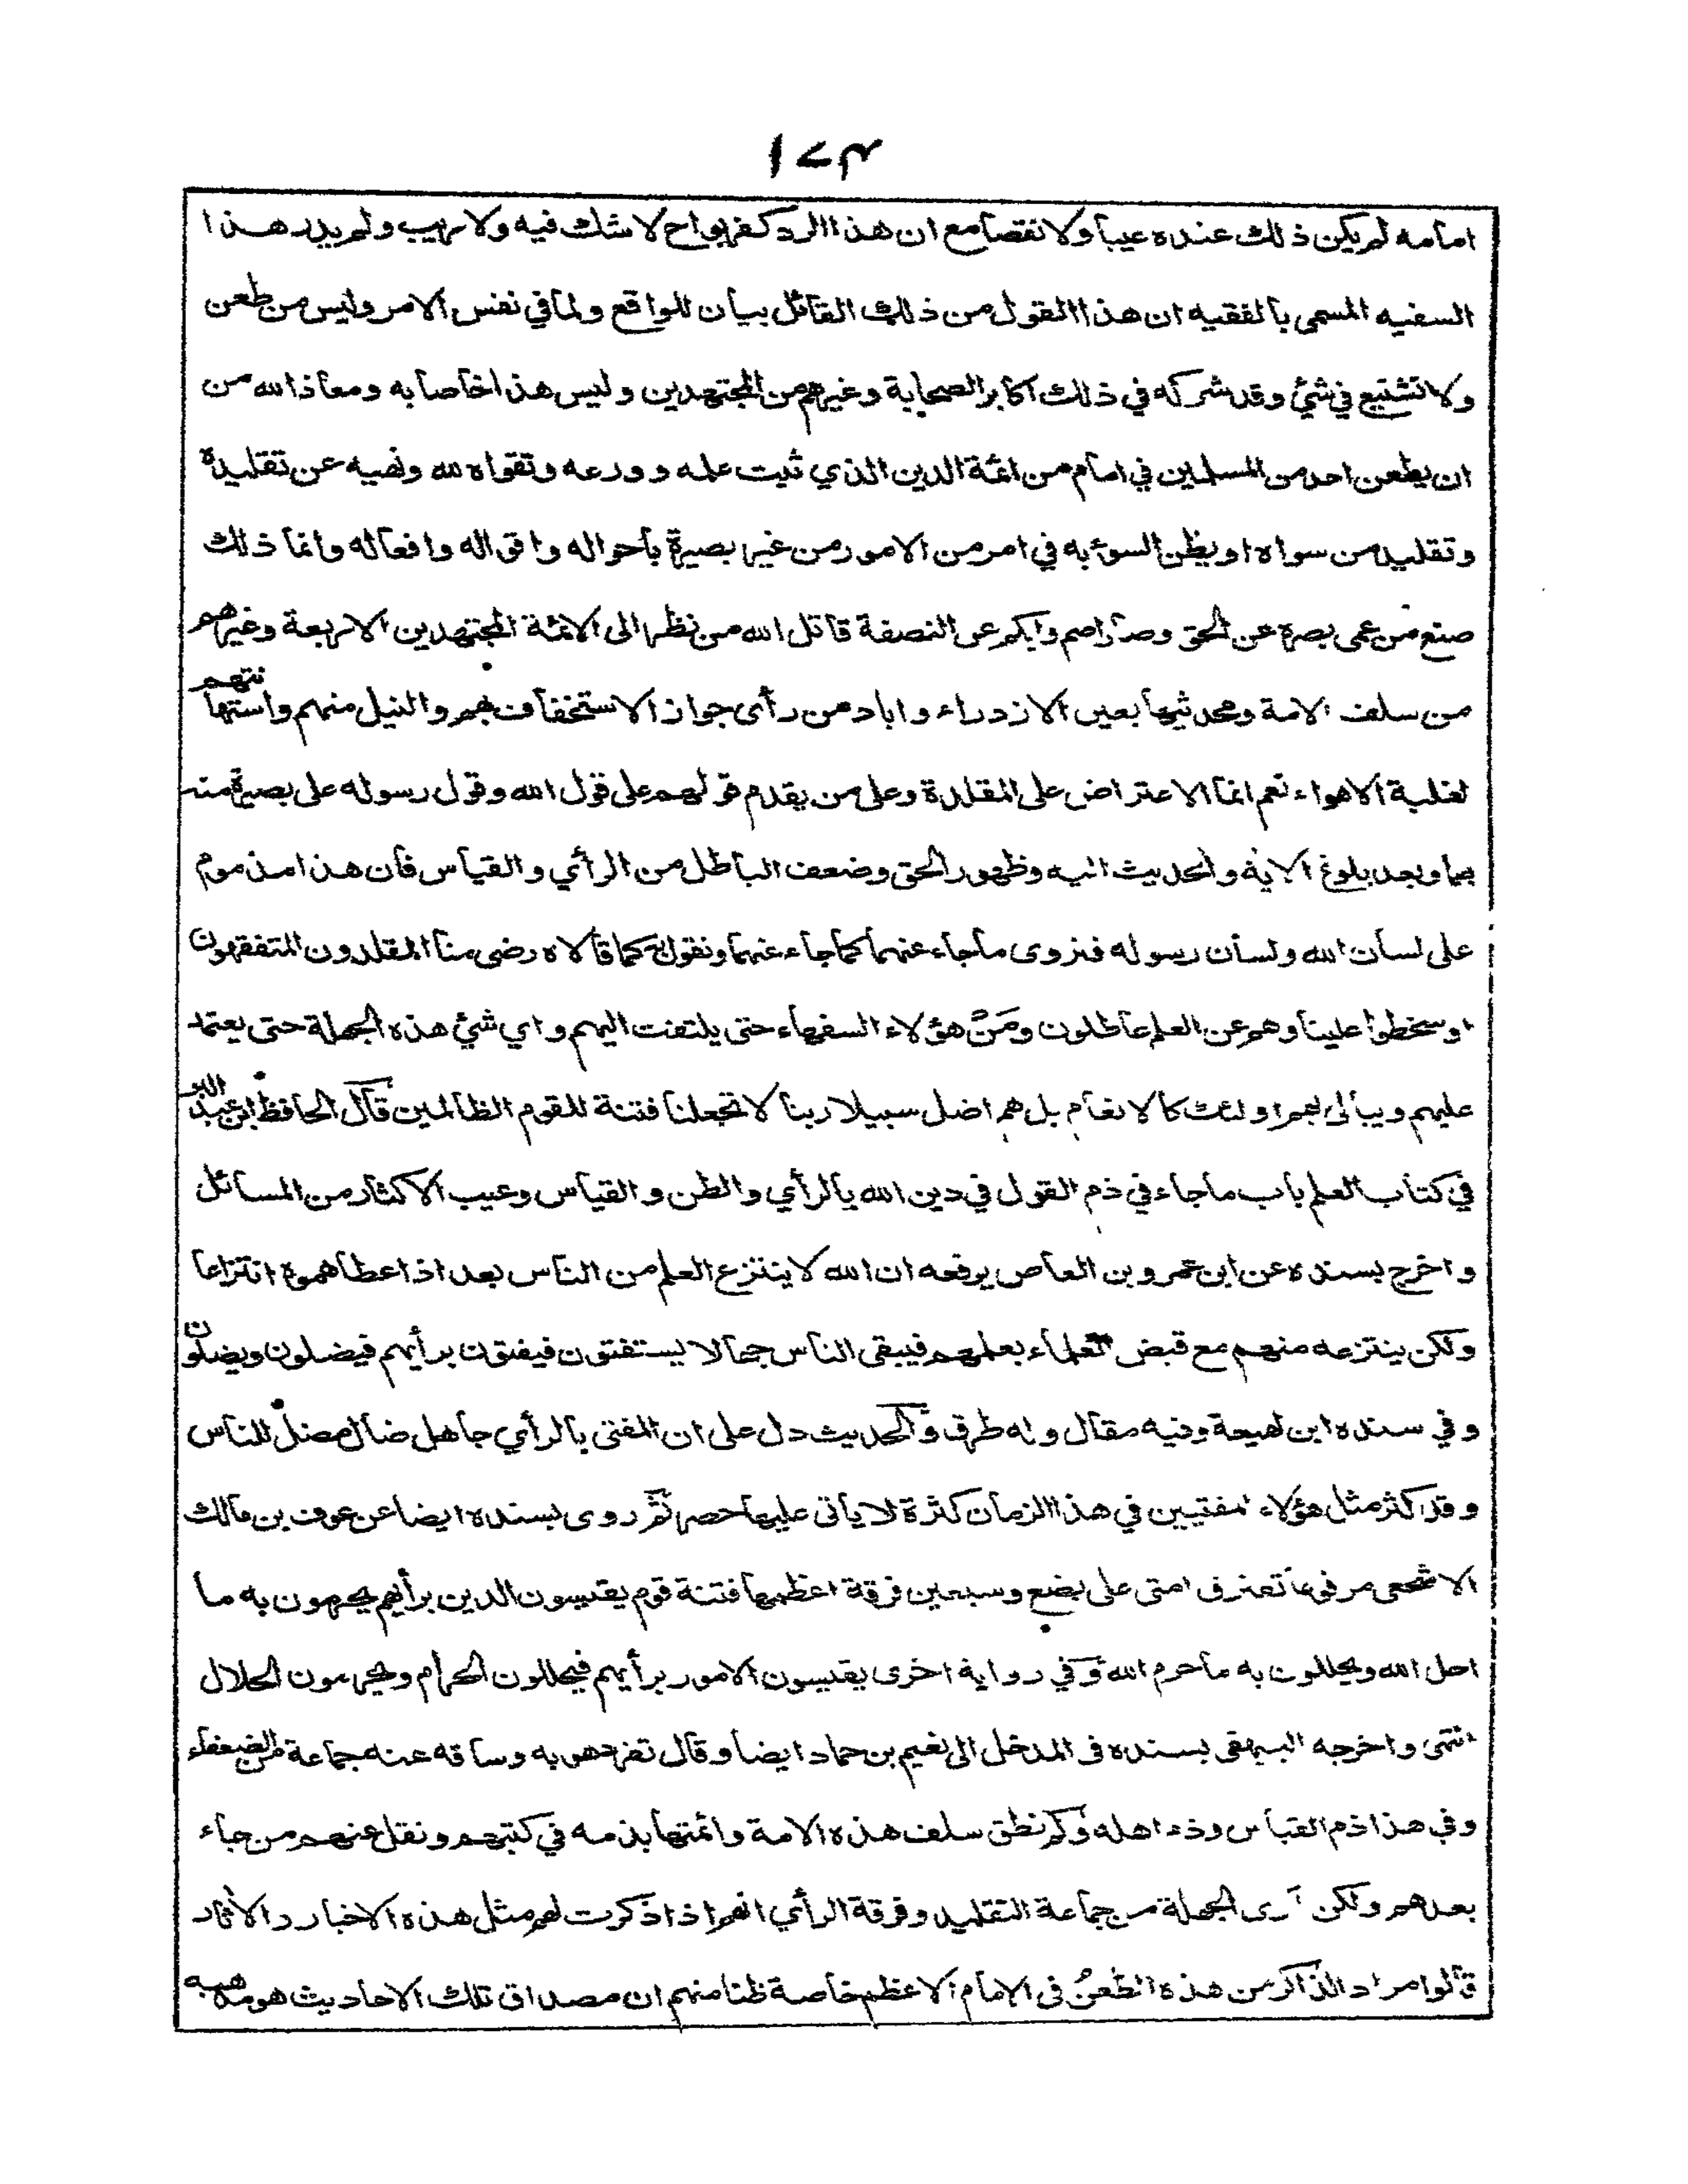 ١٧٣
امامه لم يكن ذلك عنده عيبا ولا نقصا مع ان هذا الرد كفر بواح لا شك فيه ولا ريب ولم يدر هذا
السفيه المسمى بالفقيه ان هذا القول من ذلك القائل بيان للواقع ولما في نفس الامر وليس من طعن
ولا تشنيع في شئ وقد شركه في ذلك اكابر الصحابة وغيرهم من المجتهدين وليس هذا خاصا به ومعاذ الله من
ان يطعن احد من المسلمين في امام من ائمة الدين الذي ثبت علمه وورعه وتقواه لله ونهيه عن تقليده
وتقليد من سواه او يظن السوء به في امر من الامور من غير بصيرة باحواله واقواله وافعاله وانما ذلك
صنع من عمى بصره عن الحق وصار اصم وابكم عن النصفة قاتل الله من نظر الى الائمة المجتهدين الاربعة وغيرهم
من سلف الامة ومحدثيها بعين الازدراء واباد من رأى جواز الاستخفاف بهم والنيل منهم واستهانتهم
لغلبة الاهواء نعم انما الاعتراض على المقلدة وعلى من يقدم قولهم على قول الله وقول رسوله على بصيرة منه
بها وبعد بلوغ الاية والحديث اليه وظهور الحق وضعف الباطل من الرأي والقياس فان هذا مذموم
على لسان الله ولسان رسوله فنروى ما جاء عنهما كما جاء عنهما ونقول به كما قالاه رضى منا المقلدون المتفقهون
او سخطوا علينا وهم عن العلم عاطلون ومَنْ هؤلاء السفهاء حتى يلتفت اليهم واي شئ هذه الجهلة حتى يعتمد
عليهم ويبالى بهم اولئك كالانعام بل هم اضل سبيلا ربنا لا تجعلنا فتنة للقوم الظالمين قال الحافظ ابن عبد البر
في كتاب العلم باب ما جاء في ذم القول في دين الله بالرأي والظن والقياس وعيب الاكثار من المسائل
واخرج بسنده عن ابن عمرو بن العاص يرفعه ان الله لا ينتزع العلم من الناس بعد اذ اعطاهموه انتزاعا
ولكن ينتزعه منهم مع قبض العلماء بعلمهم فيبقى الناس جهالا يستفتون فيفتون برأيهم فيضلون ويضلون
وفي سنده ابن لهيعة وفيه مقال وله طرق والحديث دل على ان المفتى بالرأي جاهل ضال مضل للناس
وقد اكثر مثل هؤلاء المفتيين في هذا الزمان كثرة لا يأتى عليها حصر ثم روى بسنده ايضا عن عوف بن مالك
الاشجعى مرفوعا تفترق امتى على بضع وسبعين فرقة اعظمها فتنة قوم يقيسون الدين برأيهم يحرمون به ما
احل الله ويحللون به ما حرم الله وفي رواية اخرى يقيسون الامور برأيهم فيحللون الحرام ويحرمون الحلال
انتهى واخرجه البيهقى بسنده فى المدخل الى نعيم بن حماد ايضا وقال تفرد هو به وسرقه عنه جماعة من الضعفاء
وفي هذا ذم القياس وذم اهله وكم نطق سلف هذه الامة وائمتها بذمه في كتبهم ونقل عنهم من جاء
بعدهم ولكن أرى الجهلة من جماعة التقليد وفرقة الرأي انهم اذا ذكرت لهم مثل هذه الاخبار والأثار
قالوا مراد الذاكر من هذه الطعنُ فى الامام الاعظم خاصة ظنا منهم ان مصداق تلك الاحاديث هو مذهبه